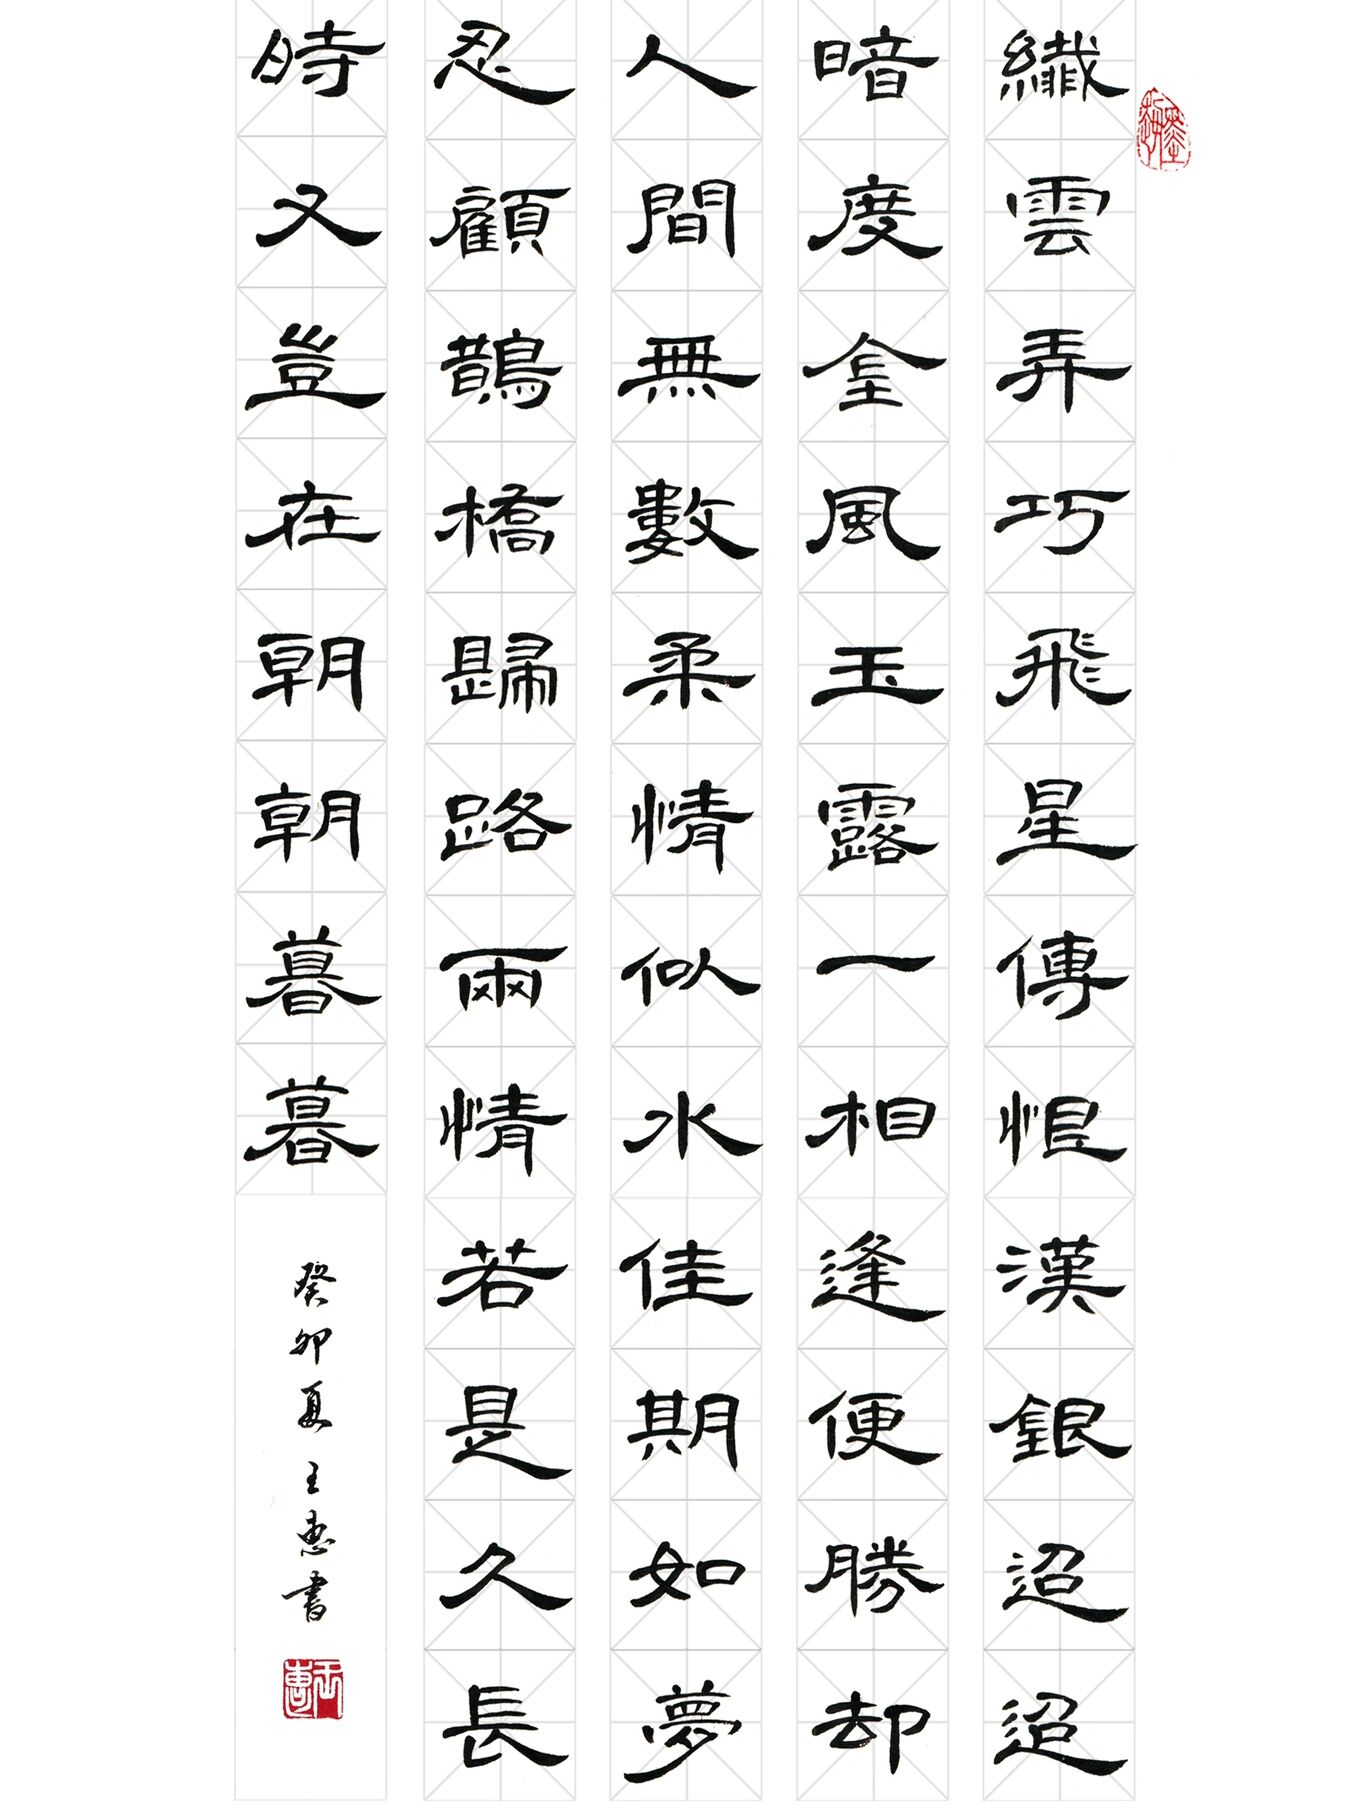 纖雲弄巧飛星傳恨漢銀迢迢
暗度金風玉露一相逢便勝却
人間無數柔情似水佳期如夢
忍顧鵲橋歸路兩情若是久長
時又豈在朝朝暮暮
癸卯夏王惠書
王惠